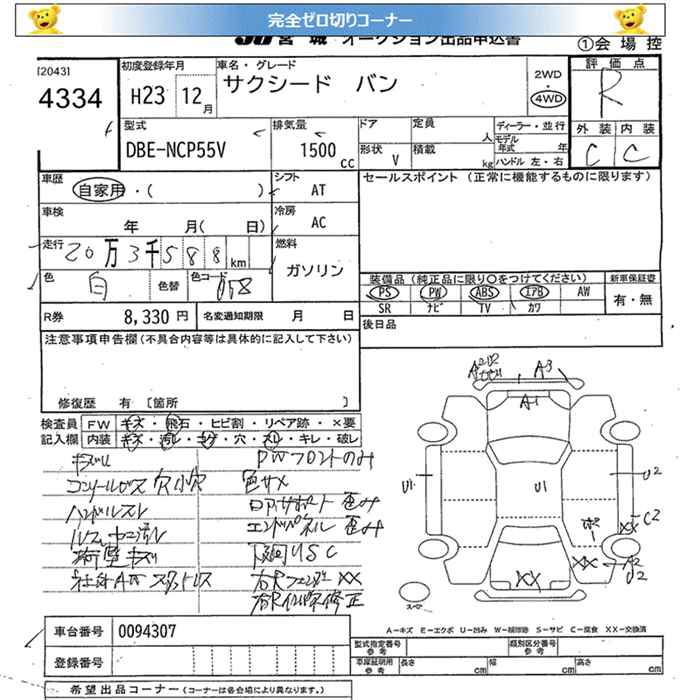 完全ゼロ切りコーナー
JU 宮 城 オークション出品申込書
①会 場 控
[2043]
4334
初度登録年月
H23 12月
車名・グレード
サクシード バン
2WD
4WD
評 価 点
R
外 装 内 装
C C
型式
DBE-NCP55V
排気量
1500 cc
ドア
定員
人
形状 V
積載
kg
ディーラー・並行
モデル年式 年
ハンドル 左・右
車歴
自家用・( )
シフト
AT
セールスポイント (正常に機能するものに限ります)
車検
年 月( 日)
冷房
AC
走行
20万3千588km
燃料
ガソリン
色
白
色替
色コード
058
装備品 (純正品に限り○をつけてください)
新車保証書
PS PW ABS エアB AW
SR ナビ TV カワ
有・無
R券 8,330 円
名変通知期限 月 日
後日品
注意事項申告欄(不具合内容等は具体的に記入して下さい)
修復歴 有 [箇所 ]
検査員記入欄
FW キズ・飛石・ヒビ割・リペア跡・×要
内装 キズ・汚レ・コゲ・穴・スレ・キレ・破レ
PWフロントのみ
コンソールBOX 穴 小穴
色サメ
ハンドルスレ
コアサポート 歪み
エンドパネル 歪み
荷室キズ
下廻りUSC
右Rフェンダー XX
A3
A1
U1
U1
U2
XX C2
XX
A2
XX
スペア
A-キズ E-エクボ U-凹み W-補修跡 S-サビ C-腐食 XX-交換済
車台番号 0094307
登録番号
型式指定番号
参考
類別区分番号
参考
車庫証明用
参考
長さ cm
幅 cm
高さ cm
希望出品コーナー (コーナーは各会場により異なります。)